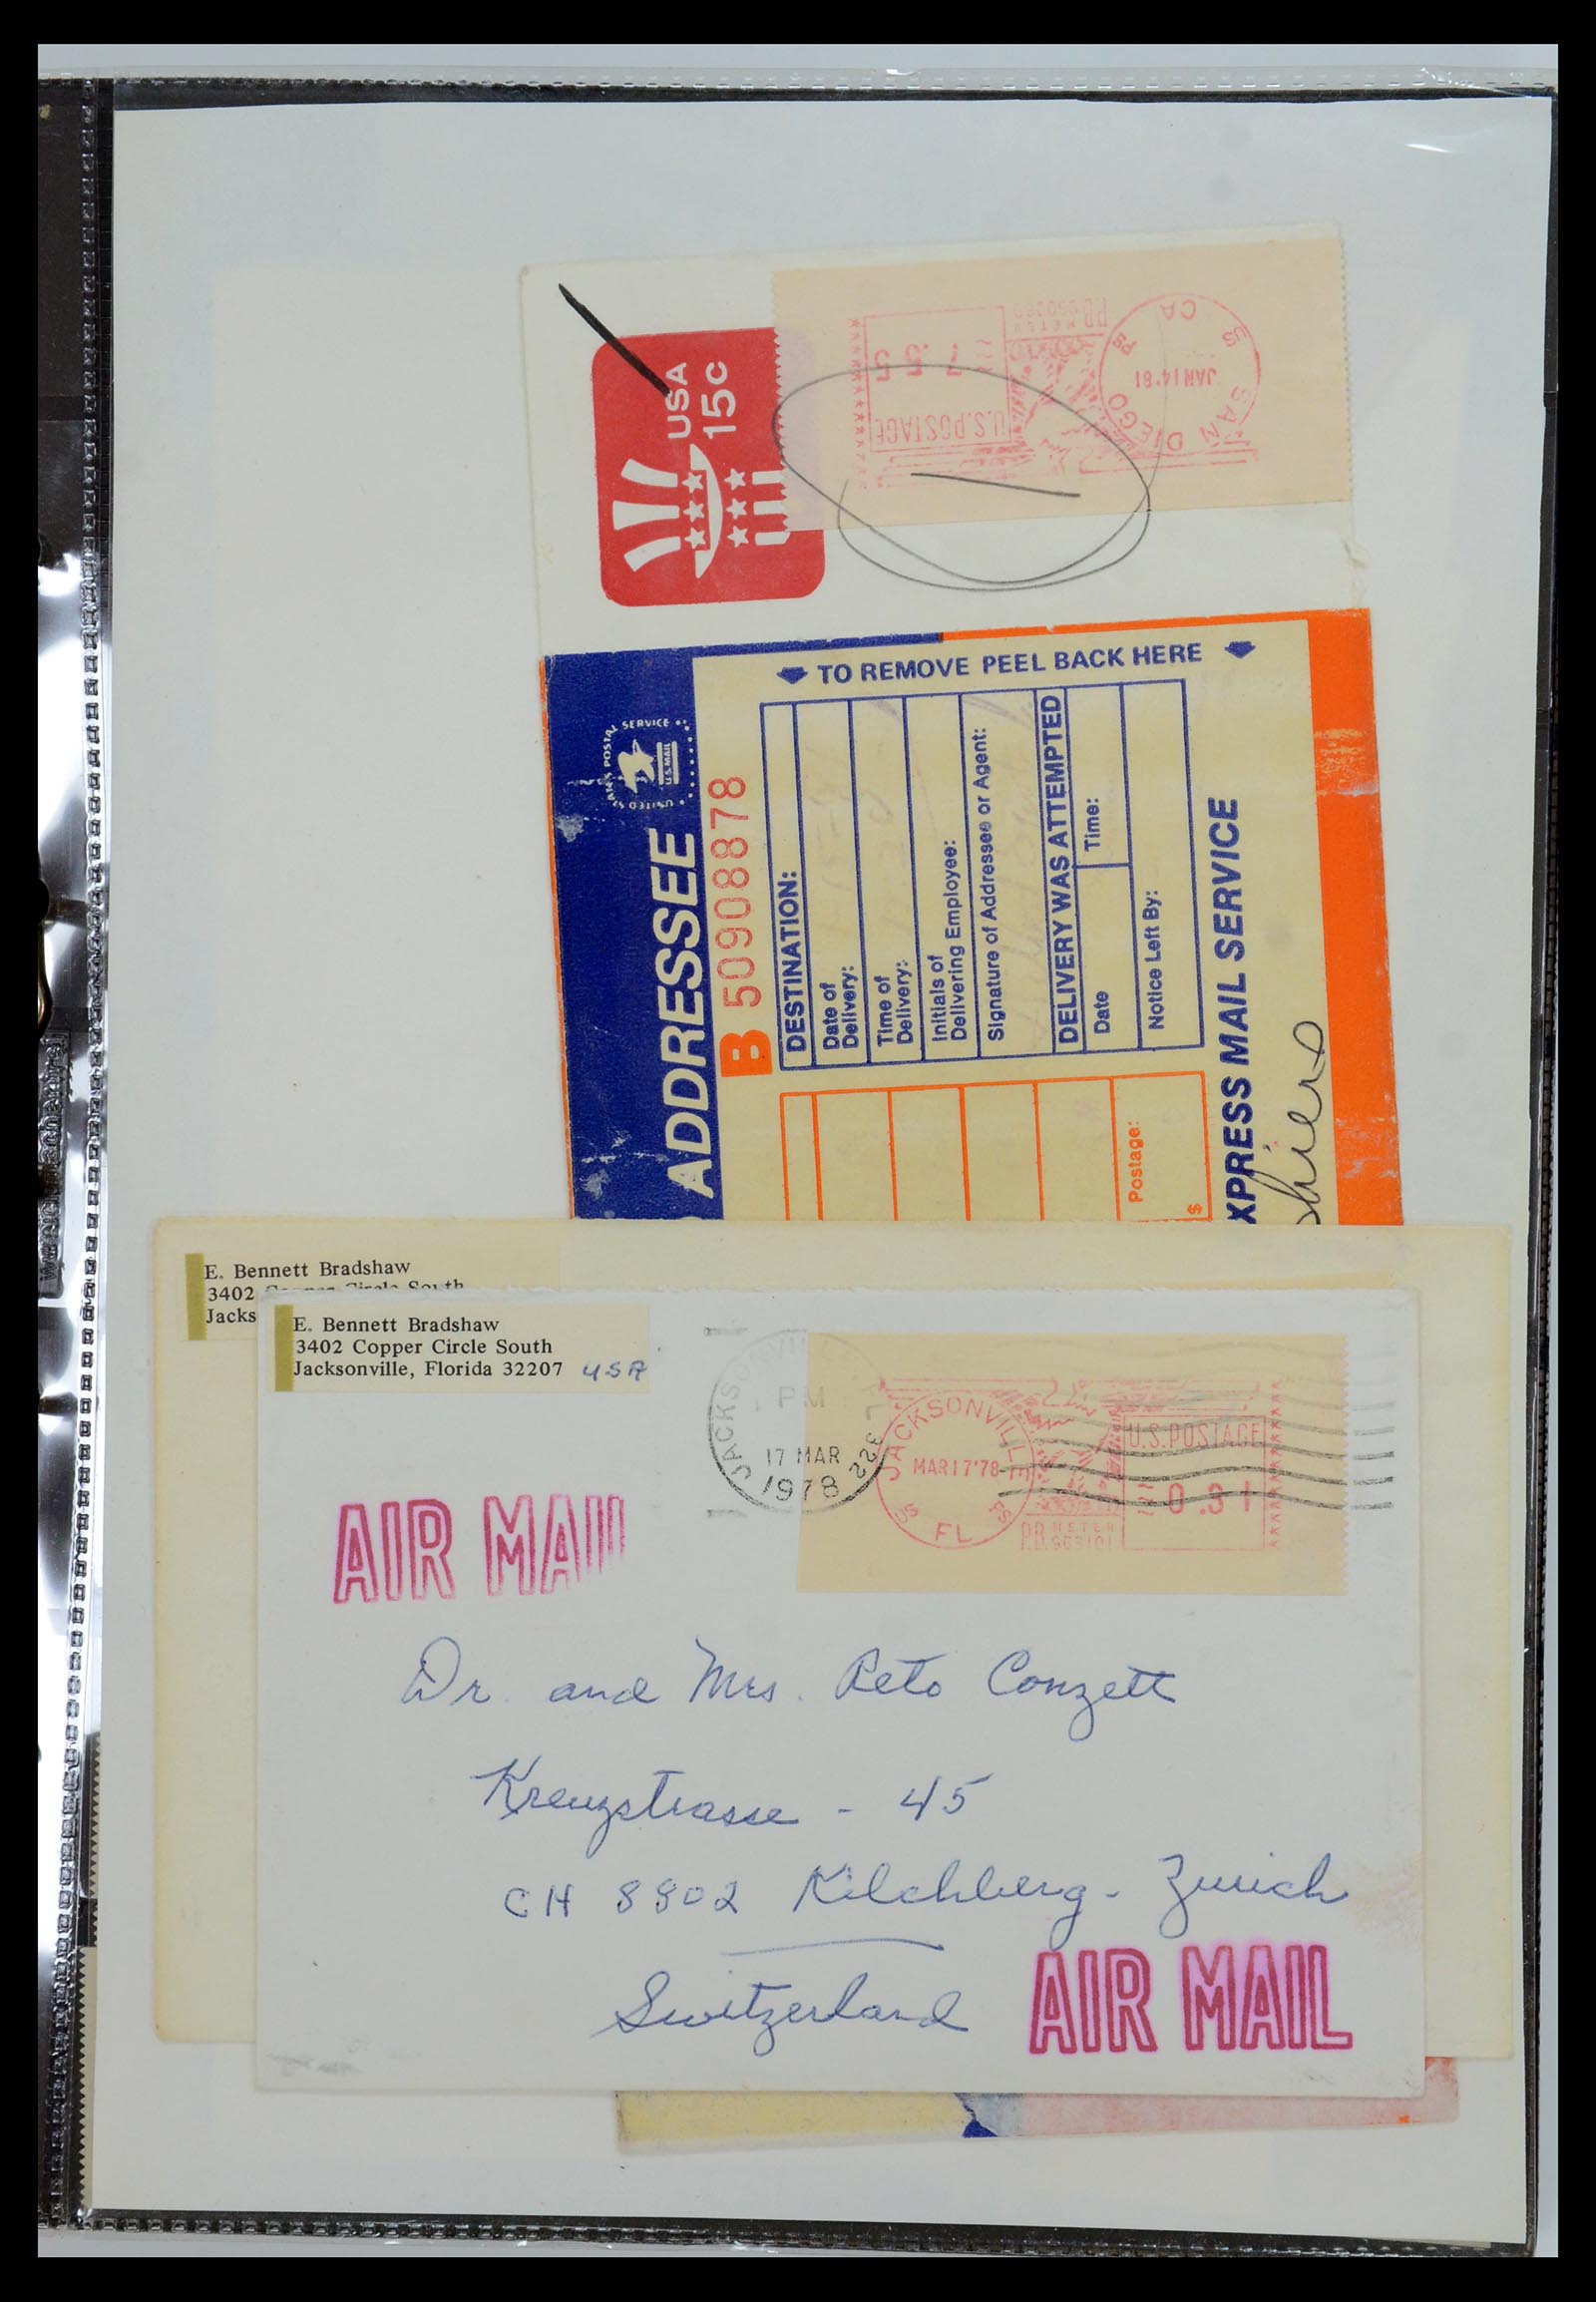 USA
15c
U.S. POSTAGE
7.55
SAN DIEGO
CA
JAN 14 '81
PB METER
TO REMOVE PEEL BACK HERE
UNITED STATES POSTAL SERVICE
U.S. MAIL
ADDRESSEE
B 50908878
DESTINATION:
Date of
Delivery:
Time of
Delivery:
Initials of
Delivering Employee:
Signature of Addressee or Agent:
DELIVERY WAS ATTEMPTED
Date
Time:
Notice Left By:
Postage:
$
XPRESS MAIL SERVICE
E. Bennett Bradshaw
3402 Copper Circle South
Jacks
E. Bennett Bradshaw
3402 Copper Circle South
Jacksonville, Florida 32207 USA
JACKSONVILLE FL 322
PM
17 MAR
1978
JACKSONVILLE
MAR 17 '78
US PS
FL
PB METER
U.S. POSTAGE
0.31
AIR MAIL
Dr. and Mrs. Reto Conzett
Kreuzstrasse - 45
CH 8802 Kilchberg - Zurich
Switzerland
AIR MAIL